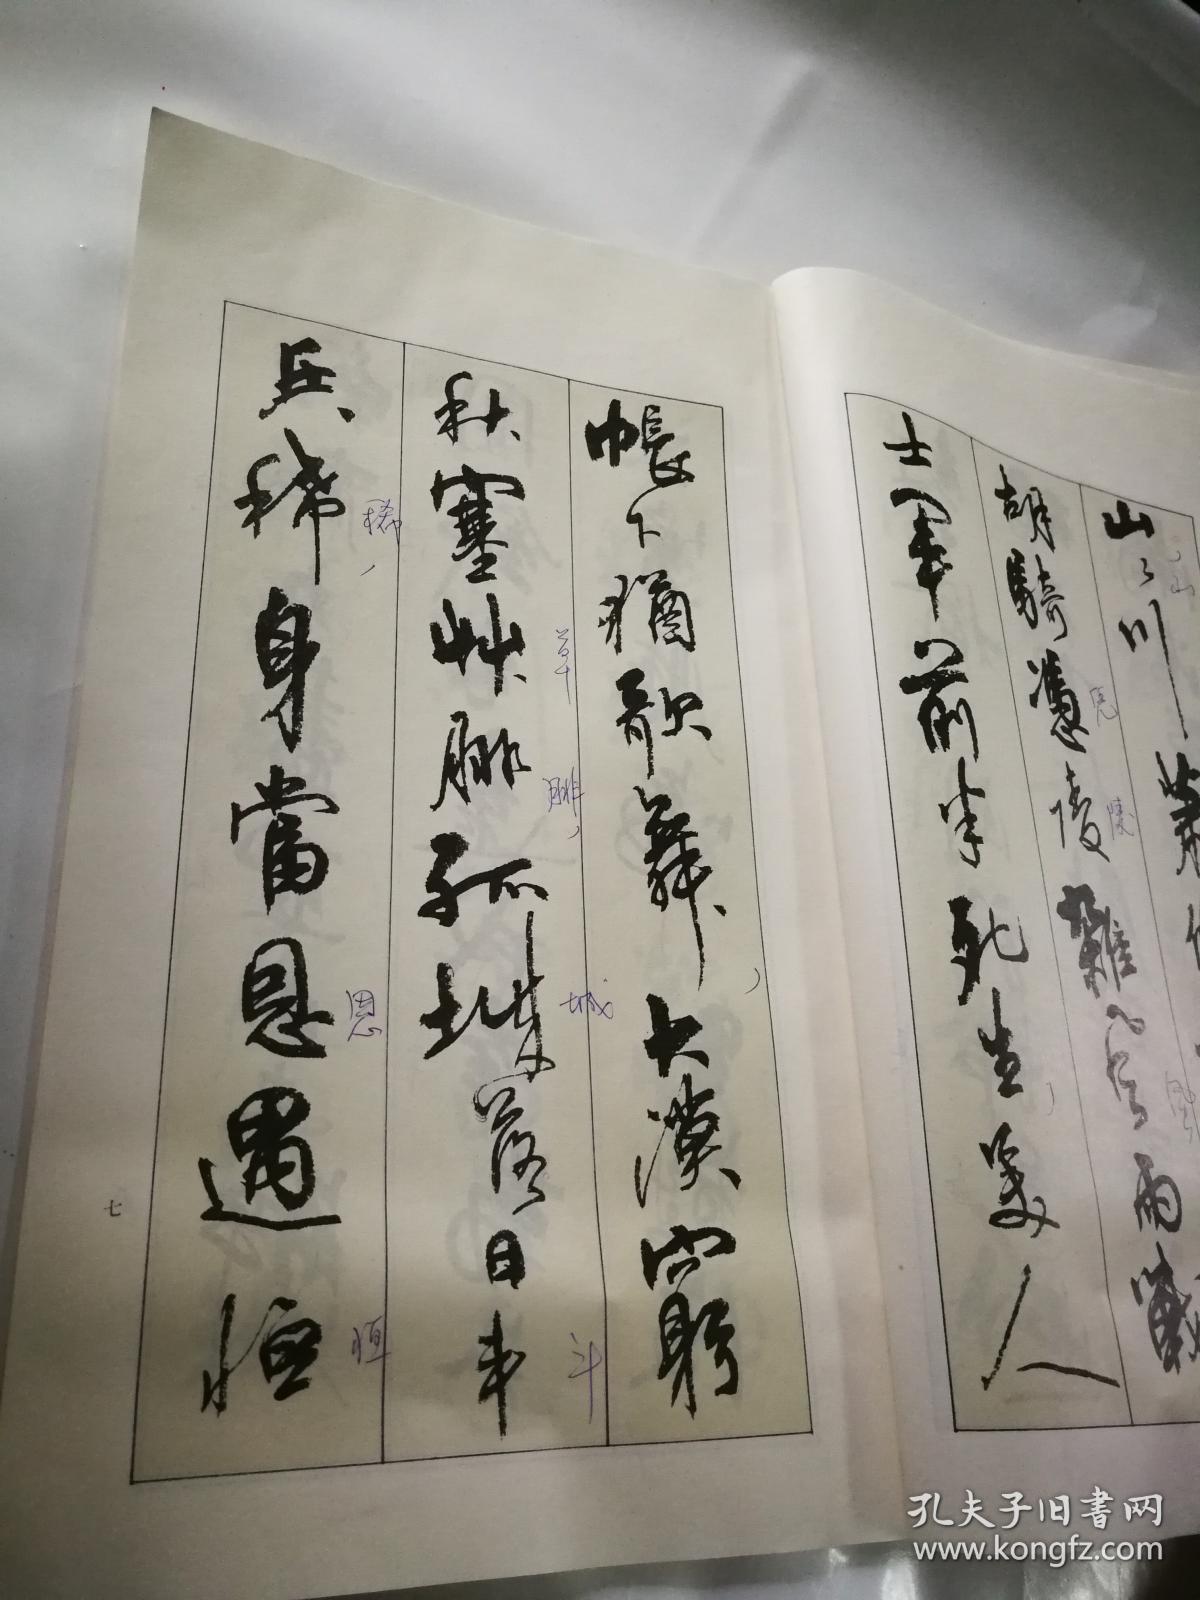 山〻川蕭條
山
胡騎憑陵雜風雨戰
凭
陵
士軍前半死生美人
帳下猶歌舞大漠窮
秋塞艸腓孤城落日斗
草
腓
城
斗
兵稀身當恩遇恒
稀
恩
恒
七
孔夫子旧书网
www.kongfz.com